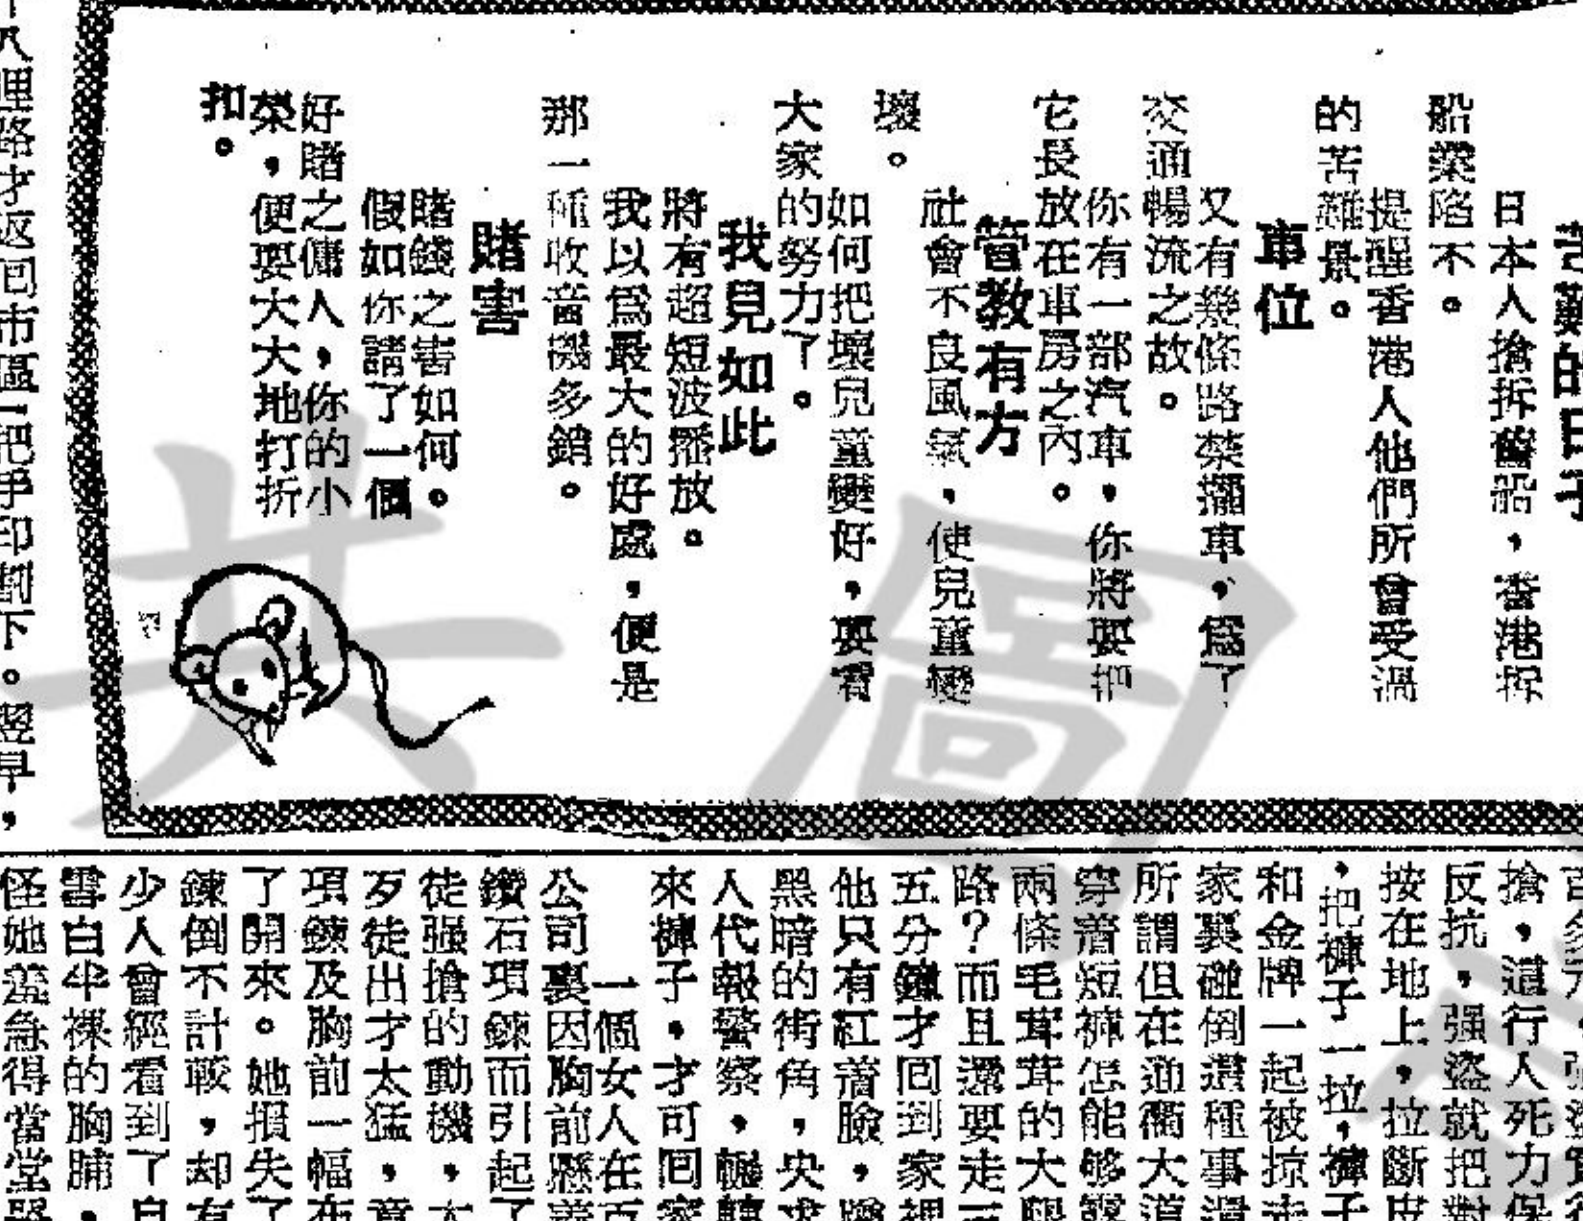 苦難的日子
日本人搶拆舊船,香港拆
船業陷不。
提醒香港人他們所曾受過
的苦難景。
車位
又有幾條路禁擺車,爲了
交通暢流之故。
你有一部汽車,你將要把
它長放在車房之內。
管教有方
社會不良風氣,使兒童變
壞。
如何把壞兒童變好,要看
大家的努力了。
我見如此
將有超短波播放。
我以爲最大的好處,便是
那一種收音機多銷。
賭害
賭錢之害如何。
假如你請了一個
好賭之傭人,你的小
菜,便要大大地打折
扣。
理路才返回市區一把手印割下。翌早,
搶,這行人死力保
反抗,强盜就把對
按在地上,拉斷皮
,把褲子一拉,褲子
和金牌一起被掠走
家裏碰倒還種事還
所謂但在通衢大道
穿着短褲怎能够露
兩條毛茸茸的大腿
路?而且還要走三
五分鐘才回到家裡
他只有紅着臉,
黑暗的街角,央求
人代報警察,
來褲子,才可回家
一個女人在百
公司裏因胸前懸着
鑽石項鍊而引起了
徒强搶的動機,
歹徒出才太猛,竟
項鍊及胸前一幅布
了開來。她損失了
鍊倒不計較,却有
少人會經看到了自
雪白半裸的胸脯,
怪她羞急得當堂哭
共
圖